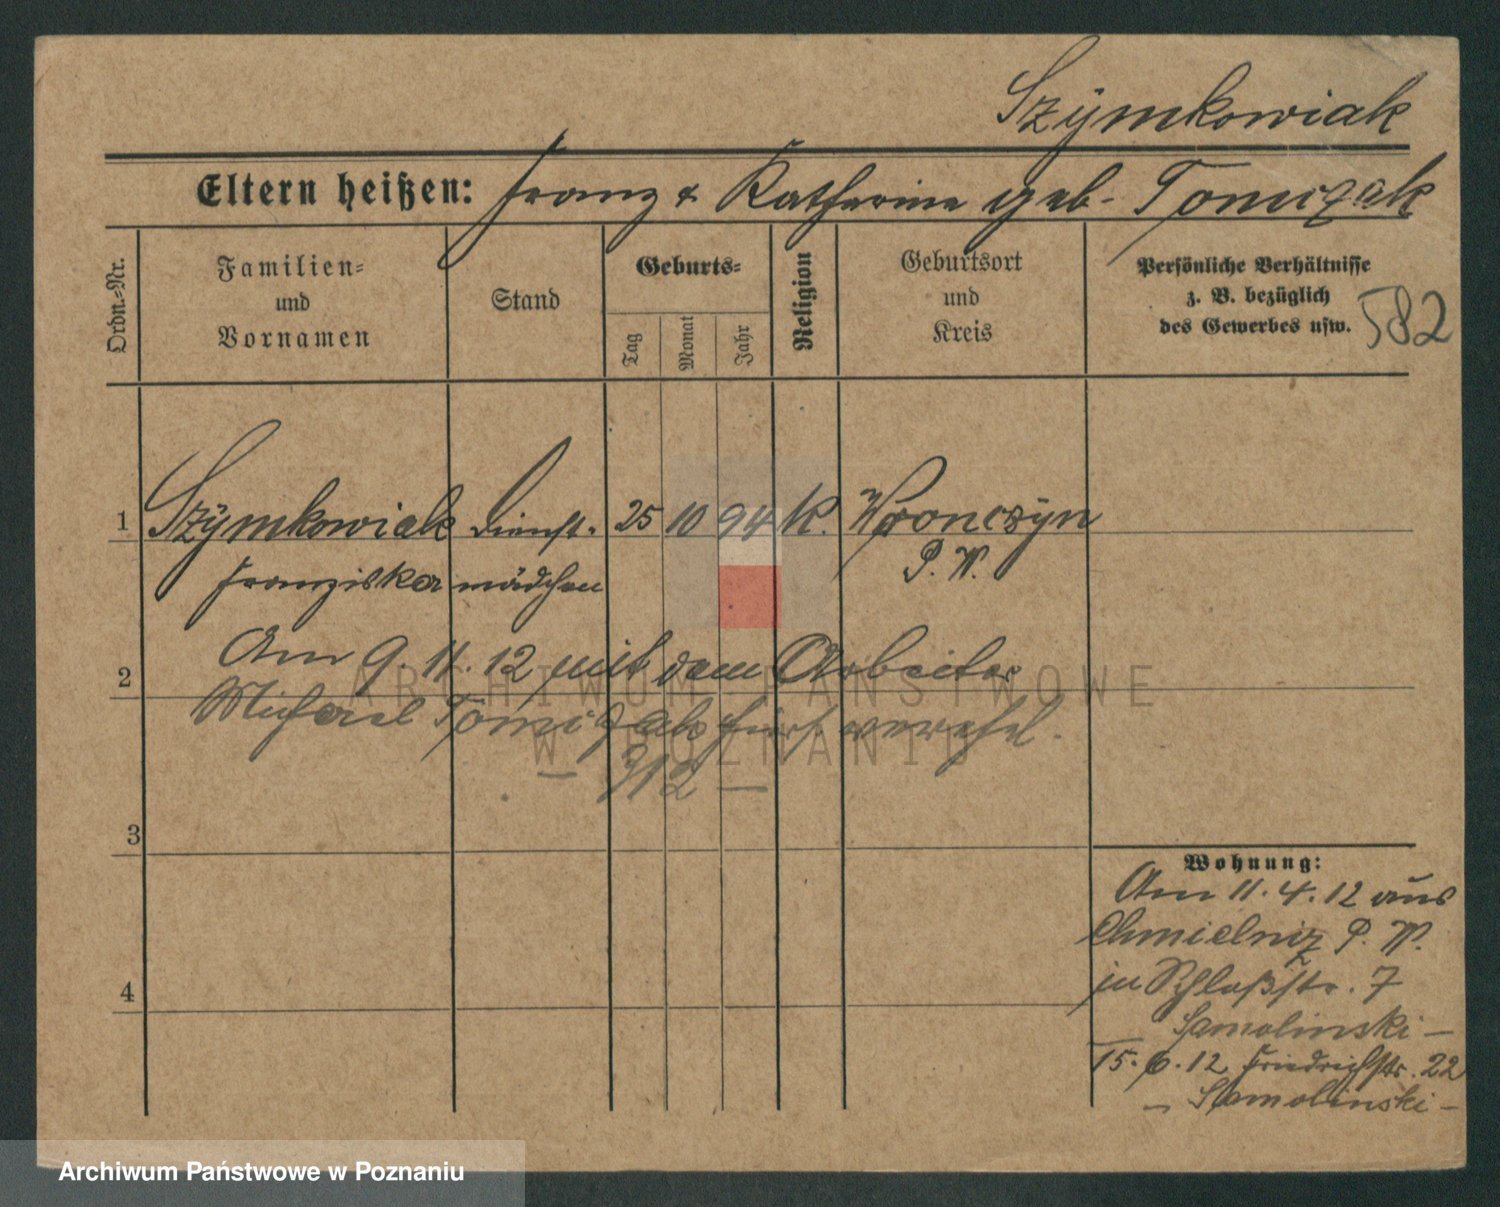 Szymkowiak
Eltern heißen: Franz & Katharina geb. Tomczak
Ordn.-Nr.
Familien-
und
Vornamen
Stand
Geburts-
Tag
Monat
Jahr
Religion
Geburtsort
und
Kreis
Persönliche Verhältnisse
z. B. bezüglich
des Gewerbes usw.
582
1 Szymkowiak Dienst- 25 10 94 K. Wronczyn
Franziska mädchen P. W.
Am 9. 11. 12 mit dem Arbeiter
2
Michael verehel.
— 312 —
3
4
Wohnung:
Am 11. 4. 12 aus
Chmielniz P. W.
in Schloßstr. 7
— Samolinski —
15. 6. 12 Friedrichstr. 22
— Samolinski —
ARCHIWUM PAŃSTWOWE
W POZNANIU
Archiwum Państwowe w Poznaniu